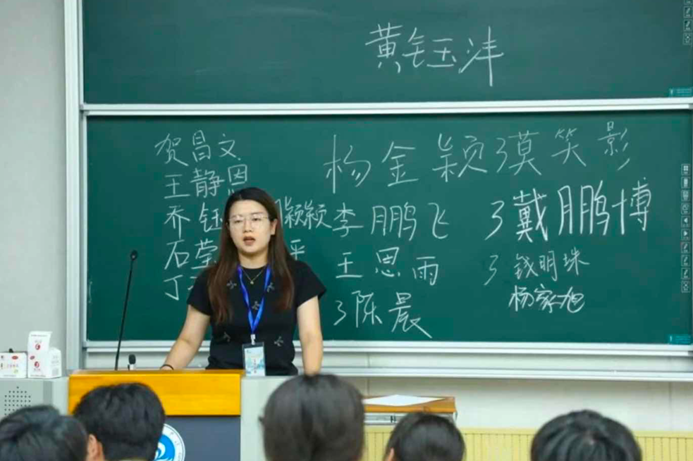 黄钰沣
贺昌文
王静恩
乔钰
颖颖
石莹
丁
杨金颖
李鹏飞
王思雨
3陈晨
3莫笑影
3戴鹏博
3钱明珠
杨家旭